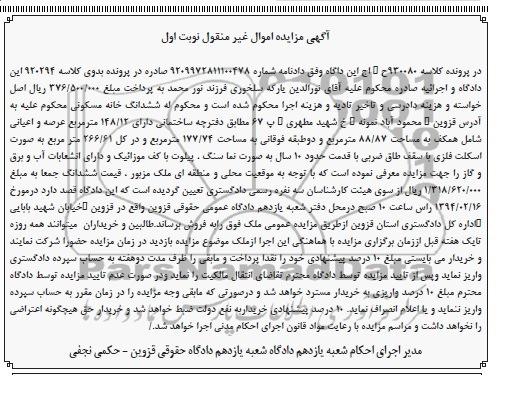 آگهی مزایده اموال غیر منقول نوبت اول
در پرونده کلاسه ۹۳۰۰۸۰ح اج این دادگاه وفق دادنامه شماره ۹۲۰۹۹۷۲۸۱۱۱۰۰۴۷۸ صادره در پرونده بدوی کلاسه ۹۲۰۲۹۴ این
دادگاه و اجرائیه صادره محکوم علیه آقای نورالدین یارکه سلخوری فرزند نور محمد به پرداخت مبلغ ۳۷۶/۵۰۰/۰۰۰ ریال اصل
خواسته و هزینه دادرسی و تاخیر تادیه و هزینه اجرا محکوم شده است و محکوم له ششدانگ خانه مسکونی محکوم علیه به
آدرس قزوین محمود آباد نمونه خ شهید مطهری پ ۶۷ مطابق دفترچه ساختمانی دارای ۱۴۸/۱۲ مترمربع عرصه و اعیانی
شامل همکف به مساحت ۸۸/۸۷ مترمربع و دوطبقه فوقانی به مساحت ۱۷۷/۷۴ مترمربع و در کل ۲۶۶/۶۱ متر مربع به صورت
اسکلت فلزی با سقف طاق ضربی با قدمت حدود ۱۰ سال به صورت نما سنگ . پیلوت با کف موزائیک و دارای انشعابات آب و برق
و گاز را جهت مزایده معرفی نموده است که با توجه به موقعیت محلی و منطقه ای ملک مزبور . قیمت ششدانگ جمعا به مبلغ
۱/۳۱۸/۶۲۰/۰۰۰ ریال از سوی هیئت کارشناسان سه نفره رسمی دادگستری تعیین گردیده است که این دادگاه قصد دارد درمورخ
۱۳۹۴/۰۲/۱۶ راس ساعت ۱۰ صبح درمحل دفتر شعبه یازدهم دادگاه عمومی حقوقی قزوین واقع در قزوین خیابان شهید بابایی
اداره کل دادگستری استان قزوین ازطریق مزایده عمومی ملک فوق رابه فروش برساند.طالبین و خریداران میتوانند همه روزه
تایک هفته قبل اززمان برگزاری مزایده با هماهنگی این اجرا ازملک موضوع مزایده بازدید در زمان مزایده حضورا شرکت نمایند
و خریدار می بایستی مبلغ ۱۰ درصد پیشنهادی خود را نقدا پرداخت و مابقی را ظرف مدت دوهفته به حساب سپرده دادگستری
واریز نماید وپس از تایید مزایده توسط دادگاه محترم تقاضای انتقال مالکیت را نماید ودر صورت عدم تایید مزایده توسط دادگاه
محترم مبلغ ۱۰ درصد واریزی به خریدار مسترد خواهد شد و درصورتی که مابقی وجه مزایده را در زمان مقرر به حساب سپرده
واریز ننماید و یا اعلام انصراف نماید. ۱۰ درصد پیشنهادی خریداربه نفع دولت ضبط خواهد شد و خریدار حق هیچگونه اعتراضی
را نخواهد داشت و مراسم مزایده با رعایت مواد قانون اجرای احکام مدنی اجرا خواهد شد./
مدیر اجرای احکام شعبه یازدهم دادگاه شعبه یازدهم دادگاه حقوقی قزوین - حکمی نجفی